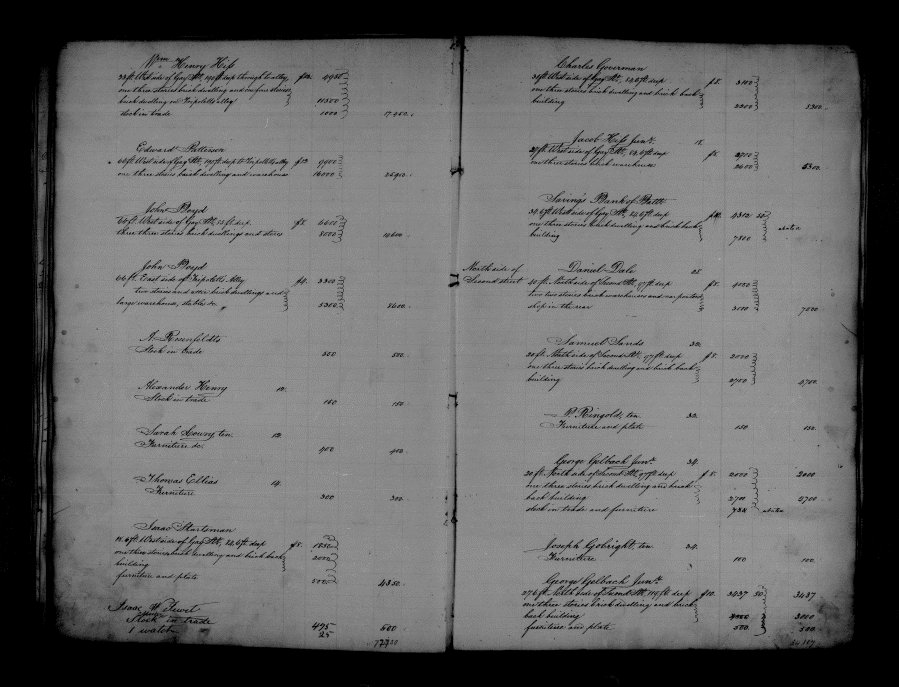 Wm Henry Hiss
33 ft West side of Gay St, 190 ft deep through to alley, $150. 4950
one three stories brick dwelling and one four stories
brick dwelling on Tripoletts alley 11500
stock in trade 1000 17.450.
Edward Patterson
66 ft West side of Gay St, 190 ft deep to Tripoletts alley $150 9900
one three stories brick dwelling and warehouse 16000
John Boyd
66 ft West side of Gay St, deep $5. 6600
three three stories brick dwellings and stores 8000 14600.
John Boyd
66 ft East side of Tripoletts Alley $4. 3300
two stories and attic brick dwellings and
large warehouse, stables &c. 5300 8600.
A. Rosenfeldts
Stock in trade 500 500.
Alexander Henry 10.
Stock in trade 150 150.
Sarah Lowry, ten 12.
Furniture &c. 400 400.
Thomas Ellias 14.
Furniture 300 300.
Isaac Startsman
West side of Gay St, deep $5.
one three stories brick dwelling and brick back 2000
building
furniture and plate 500 4350.
Isaac W. Jewet
Stock in trade 475
1 watch 25 500
Charles Goverman
West side of Gay St, deep $5. 3100
one three stories brick dwelling and brick back
building 2200 5300.
Jacob Hiss Junr. 18.
West side of Gay St, deep $5. 2700
one three stories brick warehouse 2600 5300.
Savings Bank of Balto
West side of Gay St, deep 4312 50
one three stories brick dwelling and brick back
building 7500
North side of Daniel Dale 28.
Second street 40 ft. North side of Second St, 97 ft deep $5. 4000
two two stories brick warehouses and carpenters
shop in the rear 3000 7000.
Samuel Sands 30.
20 ft. North side of Second St, 97 ft deep $5. 2000
one three stories brick dwelling and brick back
building 2700 4700.
P. Ringold, ten 32.
Furniture and plate 150 150.
George Gelbach Junr. 34.
20 ft. North side of Second St, 97 ft deep $5. 2000 2000
one three stories brick dwelling and brick
back building 2700 2700
stock in trade and furniture
Joseph Gobright, ten 34.
Furniture 100 100.
George Gelbach Junr.
27.6 ft. North side of Second St, deep 3437 50. 3437
one three stories brick dwelling and brick
back building 3000 3000
furniture and plate 500. 500.